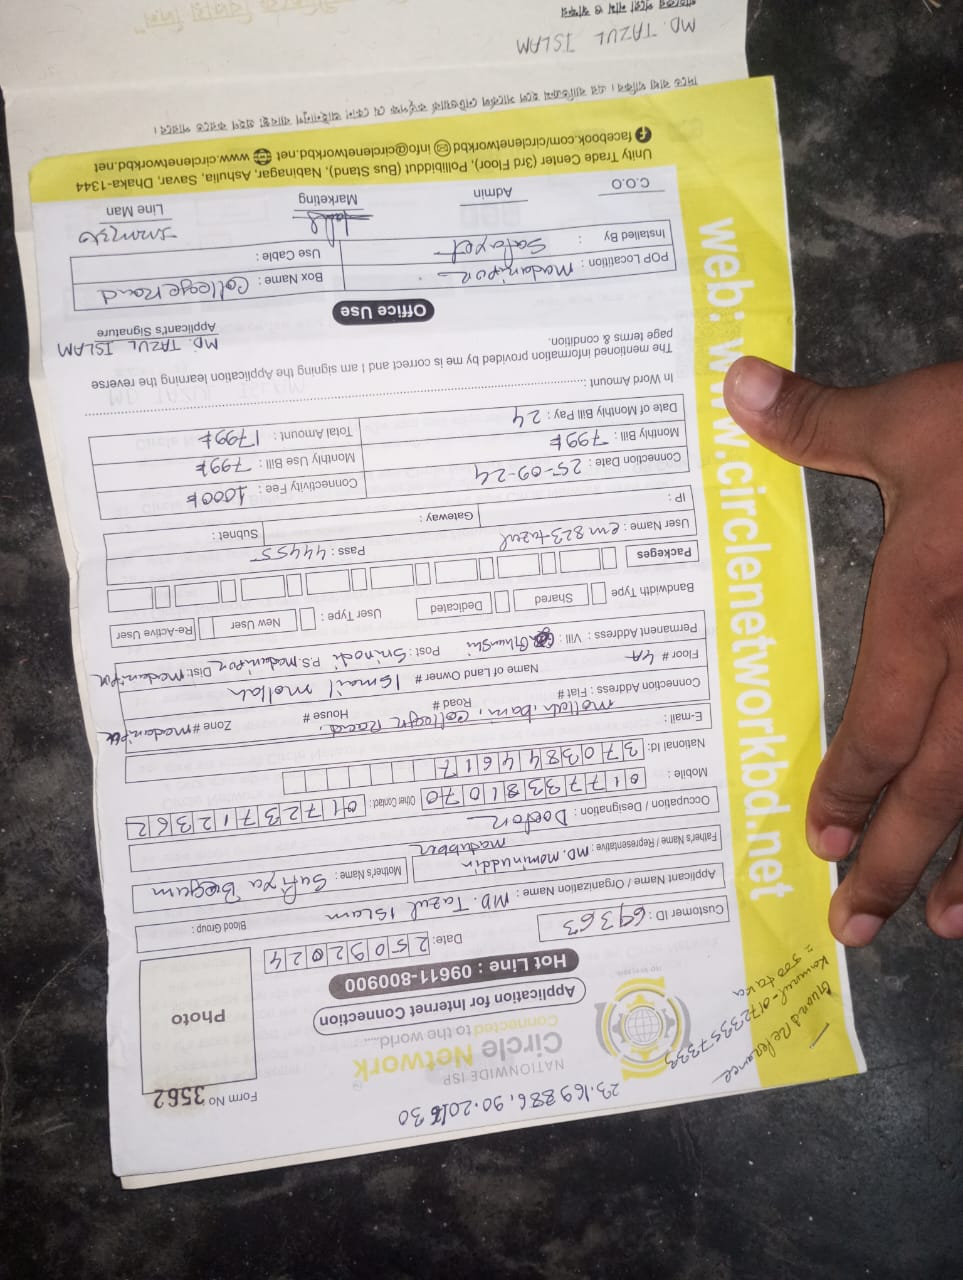 23.169886, 90.201630
Form No 3562
NATIONWIDE ISP
Circle Network
Connected to the world......
Application for Internet Connection
Hot Line : 09611-800900
Photo
Customer ID : 69363
Date: 25092024
Applicant Name / Organization Name : MD. Tazul Islam
Blood Group :
Father's Name / Representative : MD. Mominuddin madubber
Mother's Name : Sufiya Begum
Occupation / Designation : Doctor
Mobile : 01777338 1070
Other Contact : 01723712362
National Id: 3703844617
E-mail :
Connection Address : Flat # Road # House # Zone # madaripur
mollah bari, college Road,
Floor # 4A Name of Land Owner # Ismail mollah
Permanent Address : Vill : Ghunshi Post : Srinodi P.S. madaripor Dist: Madaripor
Bandwidth Type Shared Dedicated User Type : New User Re-Active User
Packeges
User Name : em823-tazul Pass : 44455
IP : Gateway : Subnet :
Connection Date : 25-09-24 Connectivity Fee : 1000৳
Monthly Bill : 799৳ Monthly Use Bill : 799৳
Date of Monthly Bill Pay : 24 Total Amount : 1799৳
In Word Amount :
The mentioned information provided by me is correct and I am signing the Application learning the reverse
page terms & condition.
MD. TAZUL ISLAM
Applicant's Signature
Office Use
POP Locatiton : Madaripor Box Name : College road
Installed By : Safayet Use Cable :
C.O.O Admin Marketing Line Man
Unity Trade Center (3rd Floor), Pollibiddut (Bus Stand), Nabinagar, Ashulia, Savar, Dhaka-1344
facebook.com/circlenetworkbd info@circlenetworkbd.net www.circlenetworkbd.net
web: www.circlenetworkbd.net
MD. TAZUL ISLAM